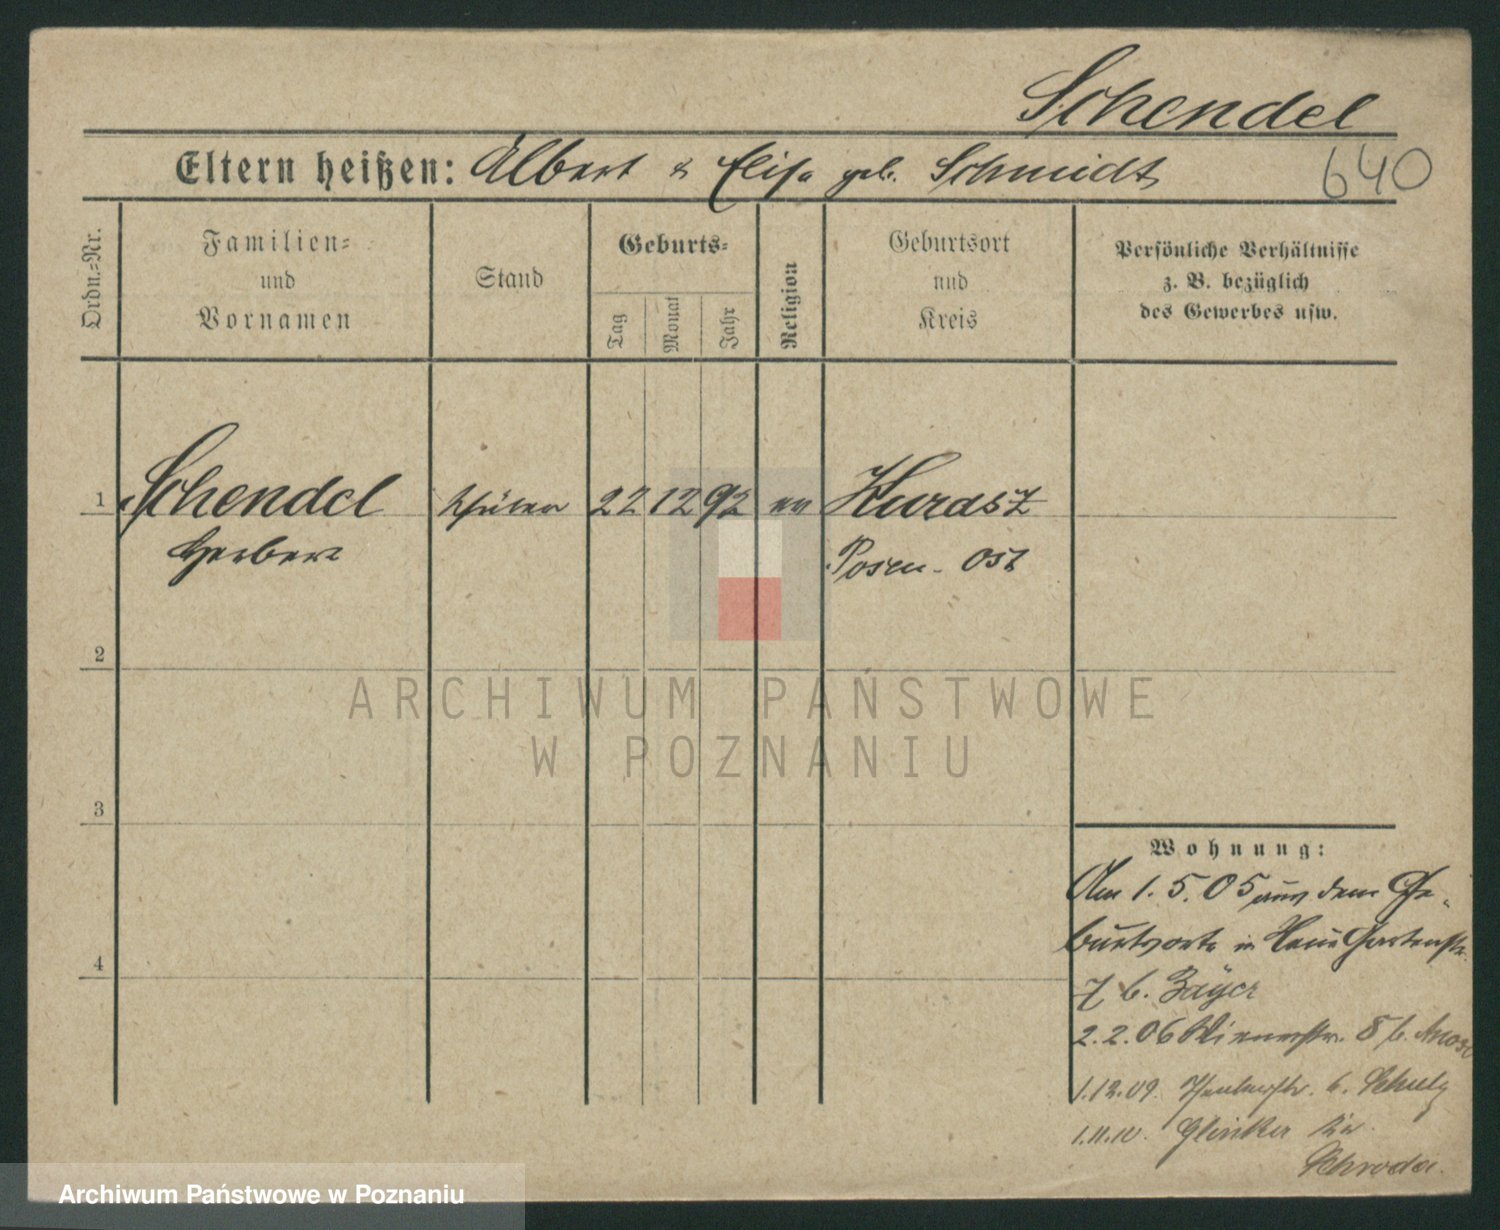 Schendel
640
Eltern heißen: Albert & Elise geb. Schmidt
Ordn.=Nr.
Familien=
und
Vornamen
Stand
Geburts=
Tag
Monat
Jahr
Religion
Geburtsort
und
Kreis
Persönliche Verhältnisse
z. B. bezüglich
des Gewerbes usw.
1 Schendel Schüler 22 12 92 ev
Herbert Posen - Ost
2
3
4
ARCHIWUM PAŃSTWOWE
W POZNANIU
Wohnung:
Am 1.5.05 aus dem Ge-
burtsorte in Gartenstr.
7 b.
2.2.06 8 b.
1.12.09. b. Schulz
1.11.10. Kr.
Schroda.
Archiwum Państwowe w Poznaniu